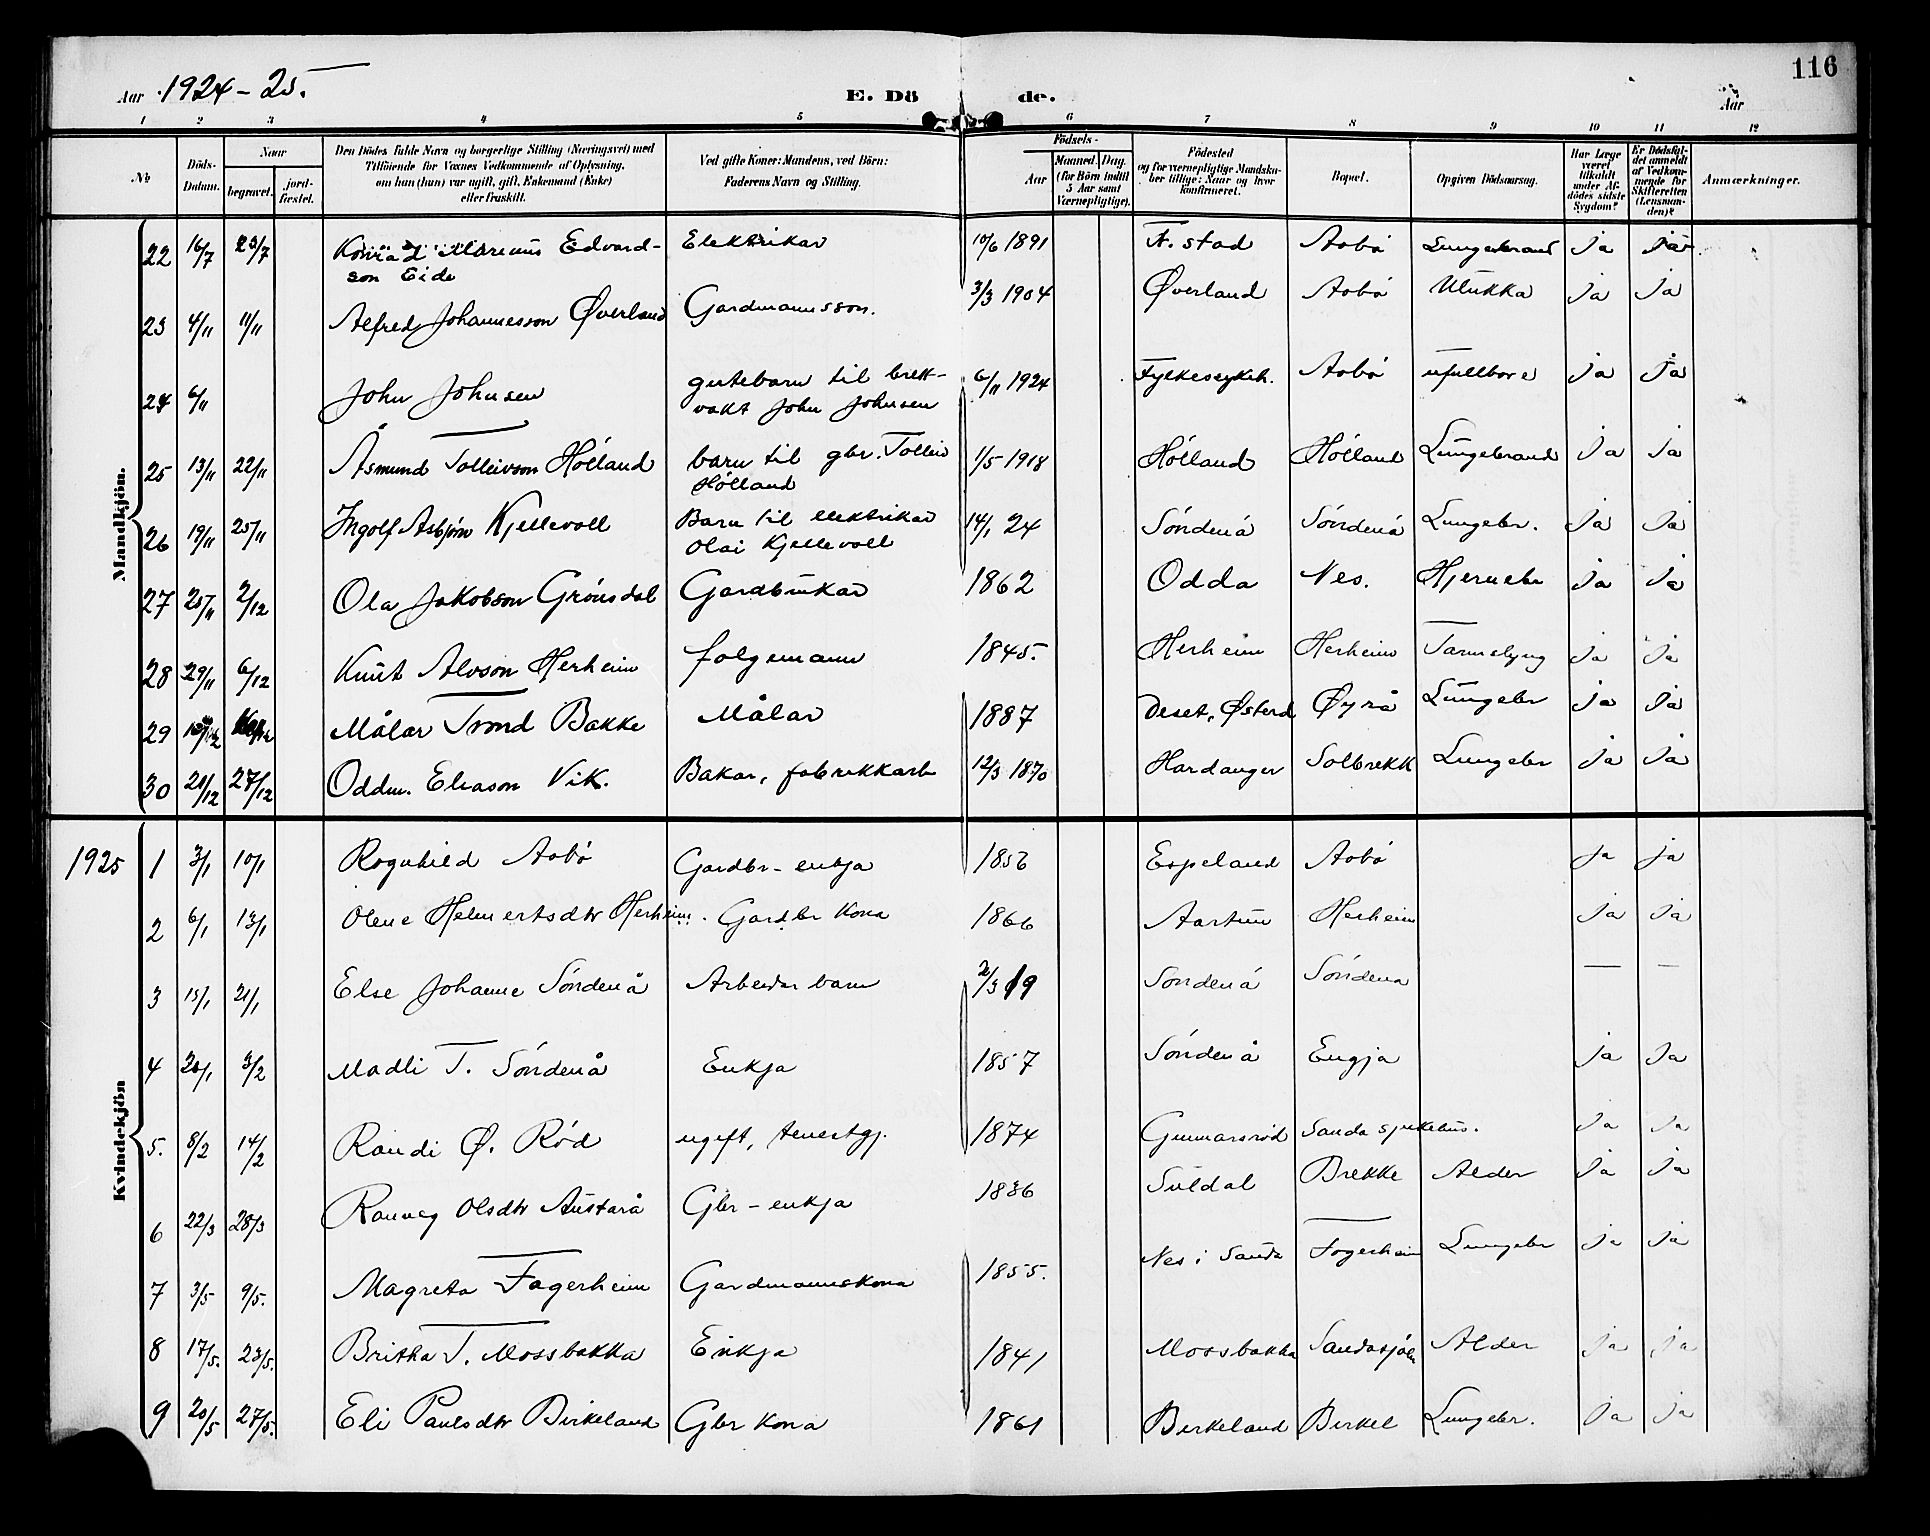 116
Aar 1924-25.
E. Döde.
Aar
1 2 3 4 5 6 7 8 9 10 11 12
No
Döds-Datum.
Naar
begravet.
jord-fæstet.
Den Dödes fulde Navn og borgerlige Stilling (Næringsvei) med
Tilföiende for Voxnes Vedkommende af Oplysning,
om han (hun) var ugift, gift, Enkemand (Enke)
eller fraskilt.
Ved gifte Koner: Mandens, ved Börn:
Faderens Navn og Stilling.
Födsels-
Aar
Maaned. Dag.
(for Börn indtil 5 Aar samt Værnepligtige).
Födested
og for værnepligtige Mandskaber tillige: Naar og hvor konfirmeret.
Bopæl.
Opgiven Dödsaarsag.
Har Læge været tilkaldt under Afdödes sidste Sygdom?
Er Dödsfaldet anmeldt af Vedkommende for Skifteretten (Lensmanden)?
Anmærkninger.
Mandkjön.
22 16/7 23/7 Konrad Marenus Edvardson Eide Elektrikar 10/6 1891 F.stad Aobø Lungebrand ja ja
23 4/11 11/11 Alfred Johannesson Øverland Gardmannsson. 3/3 1904 Øverland Aobø Ulukka ja ja
24 6/11 John Johnsen gutebarn til brekvakt John Johnsen 6/11 1924 Fylkessykeh. Aobø ufullbore ja ja
25 13/11 22/11 Åsmund Tolleivson Hólland barn til gbr. Tolleiv Hólland 1/5 1918 Hólland Hólland Lungebrand ja ja
26 19/11 25/11 Ingolf Asbjörn Kjellevoll Barn til elektrikar Olai Kjellevoll 14/1 24 Sóndenå Sóndenå Lungebr. ja ja
27 25/11 2/12 Ola Jakobson Grónsdal Gardbrukar 1862 Odda Nes. Hjernebr ja ja
28 29/11 6/12 Knut Alvson Herheim folgemann 1845. Herheim Herheim Tarmslyng ja ja
29 Målar Trond Bakke Målar 1887 Deset, Østerd Øyrå Lungebr ja ja
30 21/12 27/12 Oddm. Eliason Vik. Bakar, fabrikkarb 12/3 1870 Hardanger Solbrekk Lungebr ja ja
1925
Kvindekjön
1 3/1 10/1 Ragnhild Aobø Gardbr-enkja 1856 Espeland Aobø ja ja
2 6/1 13/1 Olene Helmertsdtr Herheim. Gardbr Kona 1866 Aartun Herheim ja ja
3 15/1 21/1 Else Johanne Sóndenå Arbeidar barn 2/3 19 Sondenå Sóndena — —
4 20/1 3/2 Madli T. Sóndenå Enkja 1857 Sóndenå Engja ja ja
5. 8/2 14/2 Randi Ø. Rød ugift, tenestgj. 1874 Gunnarsrød Sanda sjukehus. ja ja
6 22/3 28/3 Ranveg Olsdtr Austarå Gbr-enkja 1836 Suldal Brekke Alder ja ja
7 3/5 9/5. Magreta Fagerheim Gardmannskona 1855. Nes i Sauda Fagerheim Lungebr ja ja
8 17/5. 23/5. Britha T. Mossbakka Enkja 1841 Mossbakka Saudasjøen Alder ja ja
9 20/5 27/5. Eli Paulsdtr Birkeland Gbr Kona 1861 Berkeland Birkel Lungebr. ja ja